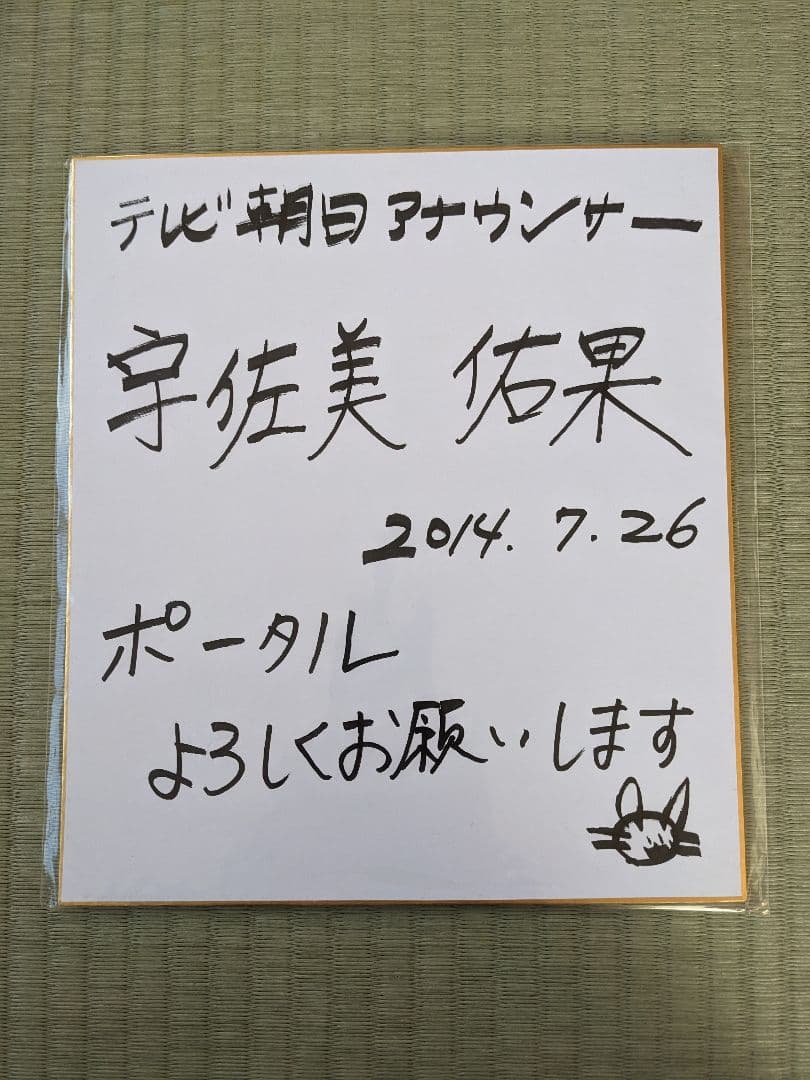 テレビ朝日アナウンサー
宇佐美 佑果
2014.7.26
ポータル
よろしくお願いします